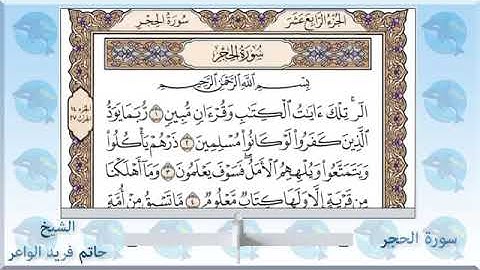 الجزء الرابع عشر
سورة الحجر
سُورَةُ الحِجْرِ
بِسْمِ اللَّهِ الرَّحْمَٰنِ الرَّحِيمِ
الٓر ۚ تِلْكَ ءَايَٰتُ ٱلْكِتَٰبِ وَقُرْءَانٍ مُّبِينٍ ١ رُّبَمَا يَوَدُّ
ٱلَّذِينَ كَفَرُوا۟ لَوْ كَانُوا۟ مُسْلِمِينَ ٢ ذَرْهُمْ يَأْكُلُوا۟
وَيَتَمَتَّعُوا۟ وَيُلْهِهِمُ ٱلْأَمَلُ ۖ فَسَوْفَ يَعْلَمُونَ ٣ وَمَآ أَهْلَكْنَا
مِن قَرْيَةٍ إِلَّا وَلَهَا كِتَابٌ مَّعْلُومٌ ٤ مَّا تَسْبِقُ مِنْ أُمَّةٍ
الجزء ١٤
الحزب ٢٧
الشيخ
حاتم فريد الواعر
سورة الحجر